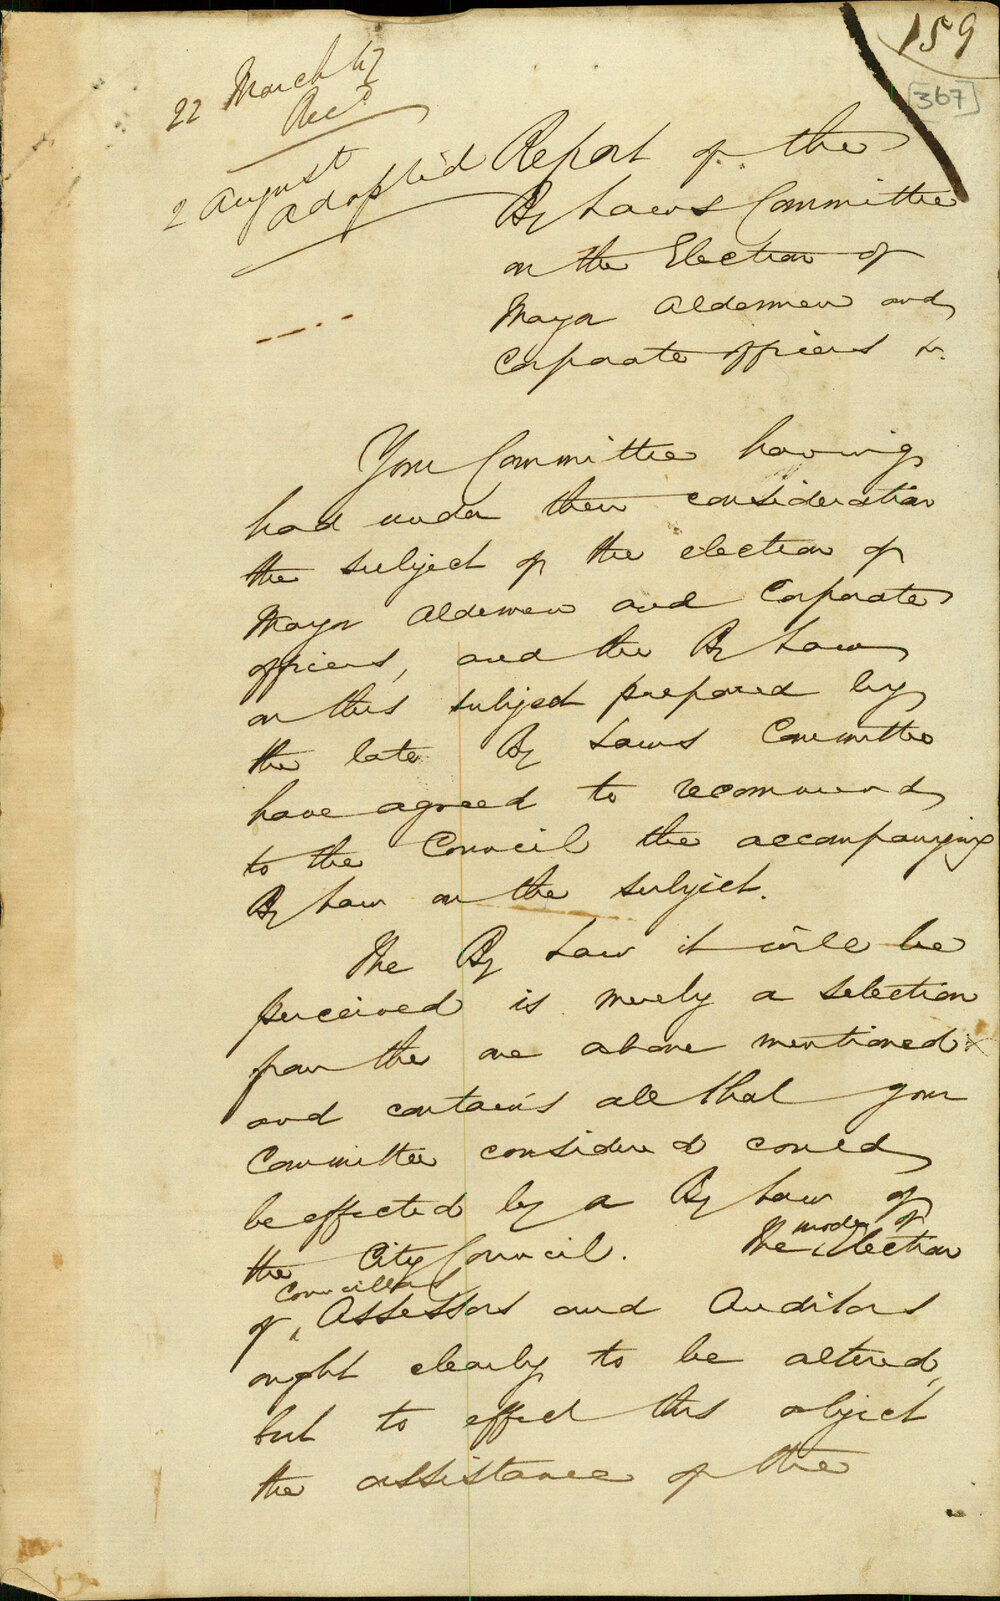 159
[367]
22 March 47
Recd
2 August
adopted
Report of the
By Laws Committee
on the Election of
Mayor Aldermen and
Corporate officers &c.
Your Committee having
had under their consideration
the subject of the election of
Mayor Aldermen and Corporate
officers, and the By Law
on this subject prepared by
the late By Laws Committee
have agreed to recommend
to the Council the accompanying
By Law on the subject.
The By Law it will be
perceived is merely a selection
from the one above mentioned
and contains all that your
Committee considered could
be effected by a By Law of
the City Council. The modes of Election
of Councillors Assessors and Auditors
ought clearly to be altered,
but to effect this object
the assistance of the